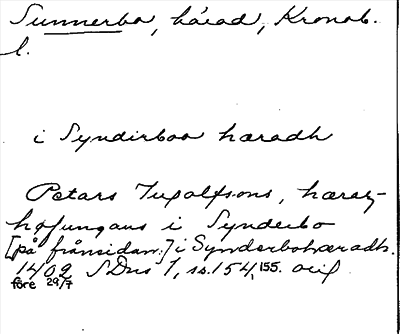 Sunnerbo, härad, Kronob.
l.
i Syndirboo hæradh
Petars Ingolfsons, häradz-
høfungans i Synderbo
[på frånsidan:] i Synderbohæradh.
1402 SDns 1, s. 154, 155. orig.
före 29/7